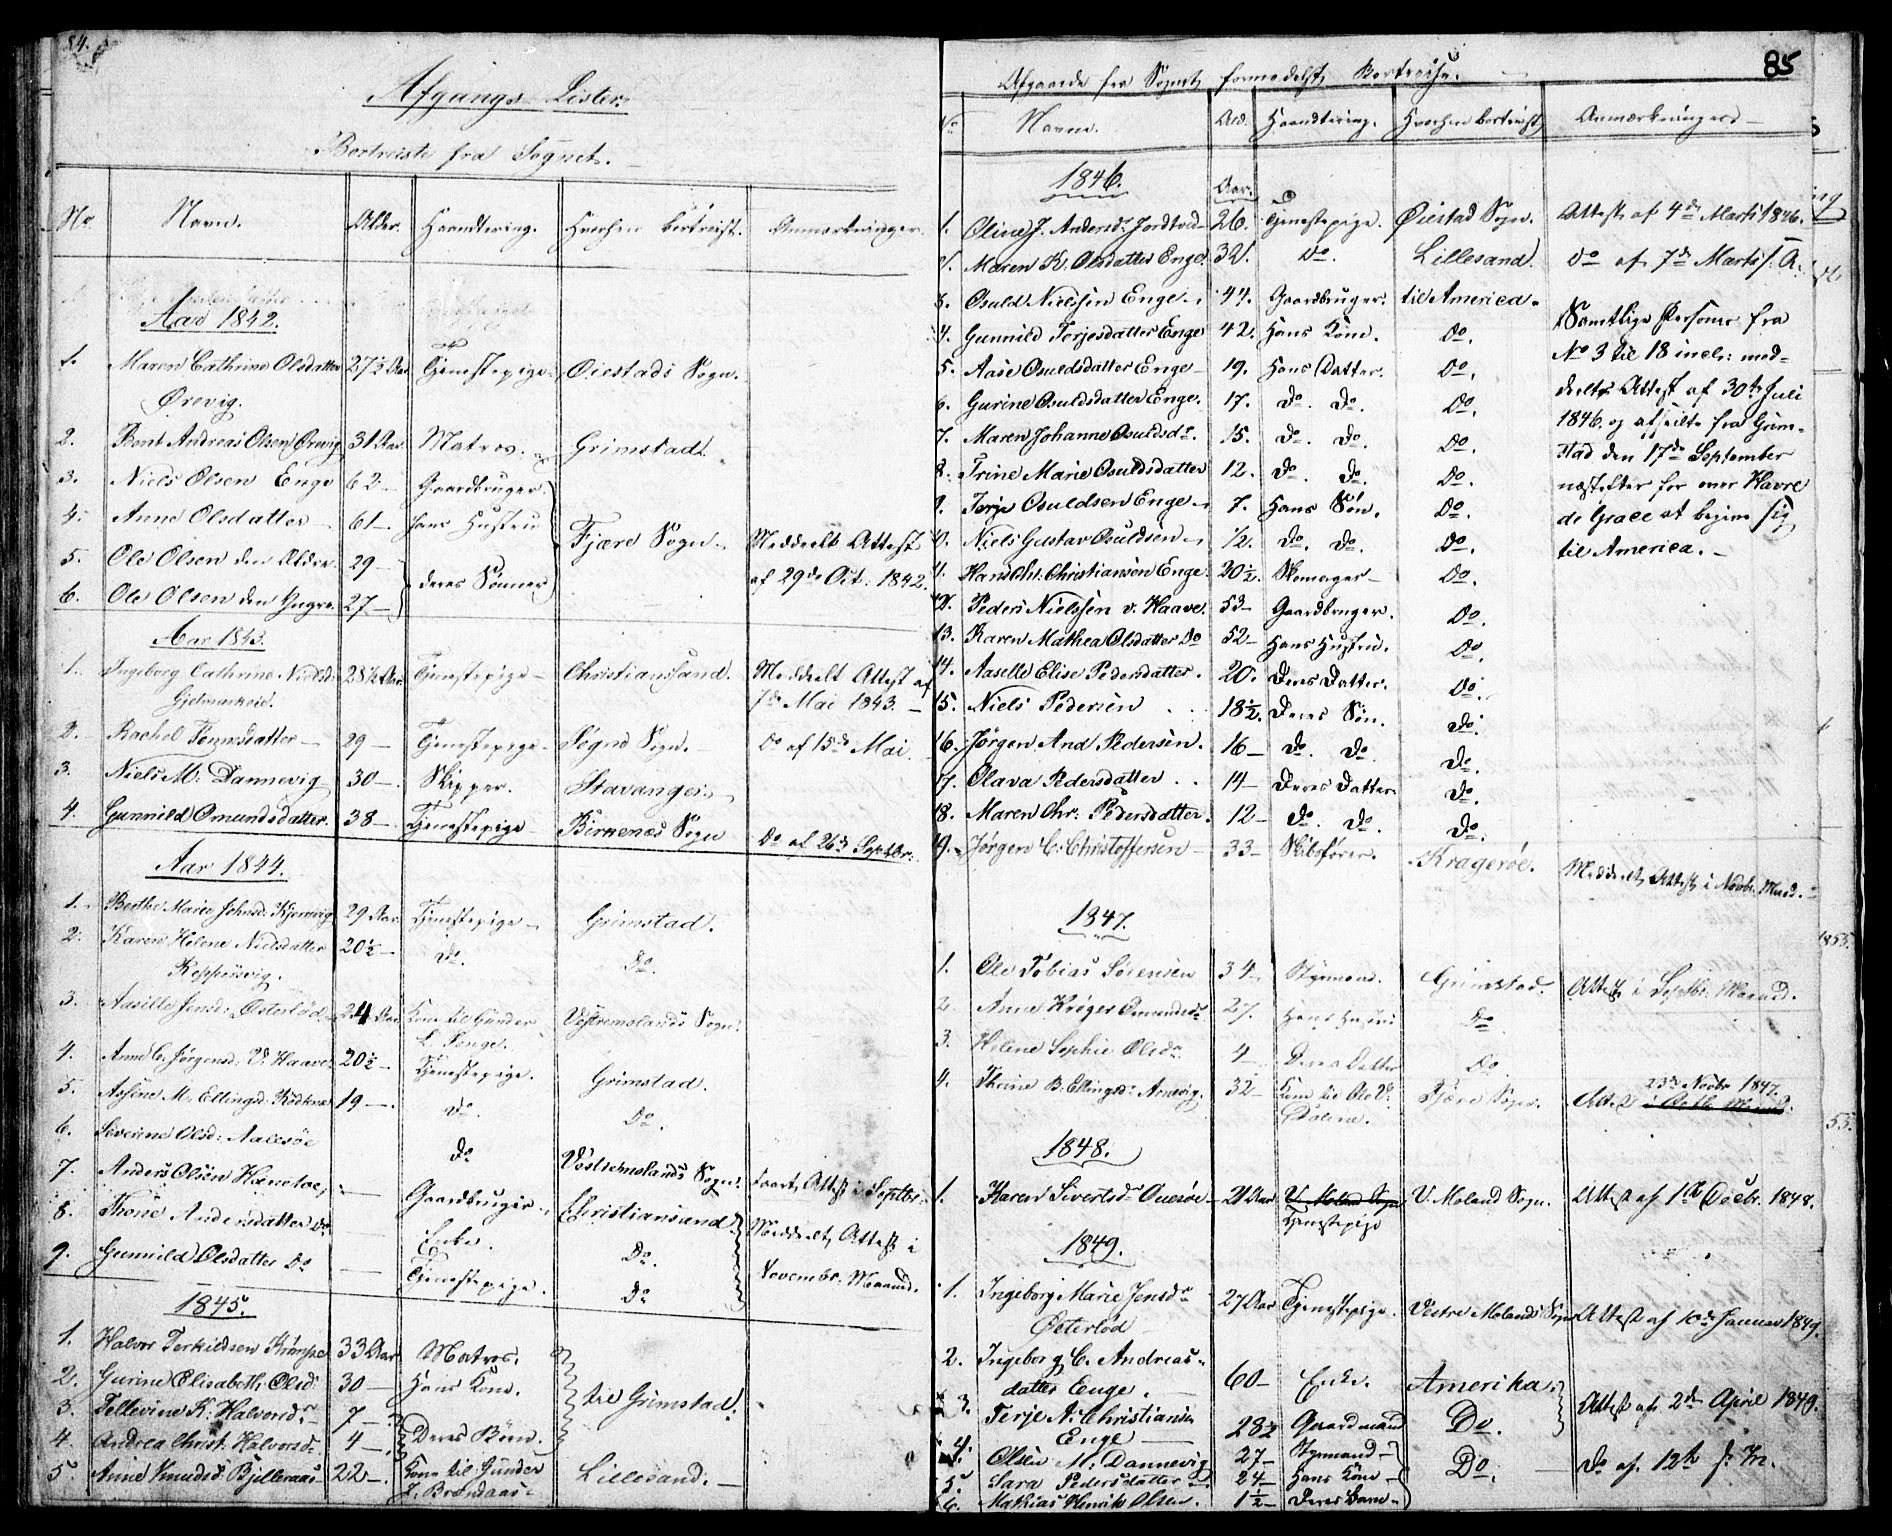 84.
Afgangs Lister.
Bortreiste fra Sognet.
No. Navn. Alder. Haandtering. Hvorhen bortreist. Anmærkninger.
Aar 1842.
1. Maren Cathrine Olsdatter 27½ Aar Tjenestepige. Øiestads Sogn.
Ørevig.
2. Bent Andreas Olsen Ørevig 31 Aar Matros. Grimstad.
3. Niels Olsen Enge 62 – Gaardbruger.
4. Anne Olsdatter 61 – hans Hustru Fjære Sogn. Meddeelt Attest
5. Ole Olsen den Ældre 29 – deres Sønner af 29de Oct. 1842.
6. Ole Olsen den Yngre 27 –
Aar 1843.
1. Ingeborg Cathrine Nielsd. 28½ Aar Tjenestepige – Christiansand. Meddeelt Attest af
7de Mai 1843. –
2. Rachel Tønnsdatter – 29 – Tjenestepige – Søgne Sogn. – Do af 15de Mai
3. Niels M. Dannevig 30 – Skipper. Stavanger.
4. Gunnild Omundsdatter. 38 – Tjenestepige – Birkenæs Sogn Do af 26de Septbr.
Aar 1844.
1. Berthe Marie Johnsd. 29 Aar Tjenestepige – Grimstad.
2. Karen Helene Nielsdatter 20½ – Do. Do.
3. Aasille Jensd. Østerlød 24 Aar Kone til Gunder Vestremolands Sogn.
L. Tonge.
4. Anne C. Jørgensd. V. Haave 20½ – Tjenestepige. Grimstad.
5. M. Ellingsd. 19 –. Do. Do.
6. Severine Olsd. Aalesøe Do Vestremolands Sogn.
7. Anders Olsen – Gaardbruger – Christiansand. Meddeelt Attest i
8. Thone Andersdatter Do – Enke. Do. Novembr. Maaned.
9. Gunnild Olsdatter Do – Tjenestepige. Do
1845.
1. Halvor Terkildsen 33 Aar Matros.
2. Gurine Elisabeth Olsd. 30 – Hans Kone. til Grimstad.
3. Tellevine K. Halvorsdr. 7 – Deres Børn.
4. Andrea Christ. Halvorsd. 4 –
5. Anne Knudsd. 22 –. Kone til Gunder Lillesand. –
85
Afgaaede fra Sognet formedelst Bortreise.
No Navne. Ald. Haandtering. Hvorhen bortreist. Anmærkninger. –
1846. Aar.
1. Oline J. Andersdr. 26. Tjenestepige. Øiestad Sogn. Attest af 4de Marts 1846.
2. Maren K. Olsdatter Enge. 32. Do. Lillesand. Do af 7de Marts s. A.
3. Osuld Nielsen Enge. 44. Gaardbruger. til America. Samtlige Personer fra
4. Gunnild Terjesdatter Enge 42. Hans Kone. Do. No 3 til 18 incl: med-
5. Aase Osuldsdatter Enge – 19. Hans Datter. Do. deelte Attest af 30te Juli
6. Gurine Osuldsdatter Enge. 17. Do. Do. Do. 1846. og afseilte fra Grim-
7. Maren Johanne Osuldsdr. 15. Do. Do. Do. stad den 17de September
8. Trine Marie Osuldsdatter 12. Do. Do. Do. næstefter for over Havre
9. Terje Osuldsen Enge – 7. Hans Søn. Do. de Grace at begive sig
10. Niels Gustav Osuldsen – ½. Do. Do. Do. til America. –
11. Hans Chr. Christiansen Enge. 20½. Skomager – Do.
12. Peder Nielssen v. Haave. 53 – Gaardbruger. Do.
13. Karen Mathea Olsdatter Do 52 – Hans Hustru. Do.
14. Aaselle Elise Pedersdatter. 20. Deres Datter. Do.
15. Niels Pedersen 18½. Deres Søn. Do.
16. Jørgen And Pedersen. 16 – Do. Do. Do.
17. Olava Pedersdatter 14 – Deres Datter Do.
18. Maren Chr: Pedersdatter. 12 – Do. Do. Do.
19. Jørgen C. Christoffersen – 33 – Skibsfører. Kragerøe. Meddeelt Attest i Novbr. Maad. –
1847.
1. Ole Tobias Sørensen 34 – Styrmand. Grimstad. Attest i Septbr. Maaned.
2. Anne Krøger 27. Hans Hustru Do
3. Helene Sophie Olsdr. 4 Deres Datter Do
23de Novbr 1847.
4. Thrine B. Ellingsdr. 32 – Kone til Ole Fjære Sogn. Attest
1848.
1. Karen Sivertsdr. 21 Aar V. Moland Sogn V. Moland Sogn. Attest af 1ste Decbr. 1848.
Tjenestepige
1849.
1. Ingeborg Marie Jensdr 27 Aar Tjenestepige. Vestre Molands Sogn Attest af 10de Januar 1849.
Østerlød
2. Ingeborg C. Andreas-
datter Enge. 60 – Enke. Amerika. Attest af 2de April 1849.
3. Terje A. Christiansen 28½ Gaardmand Do.
Enge –
4. Olsen M. Dannevig 27 – Styrmand – Do. Do af 12te
5. Sara Pedersdatter 24 – Hans Kone –
6. Mathias Henrik Olsen. 1½ – Deres Barn –